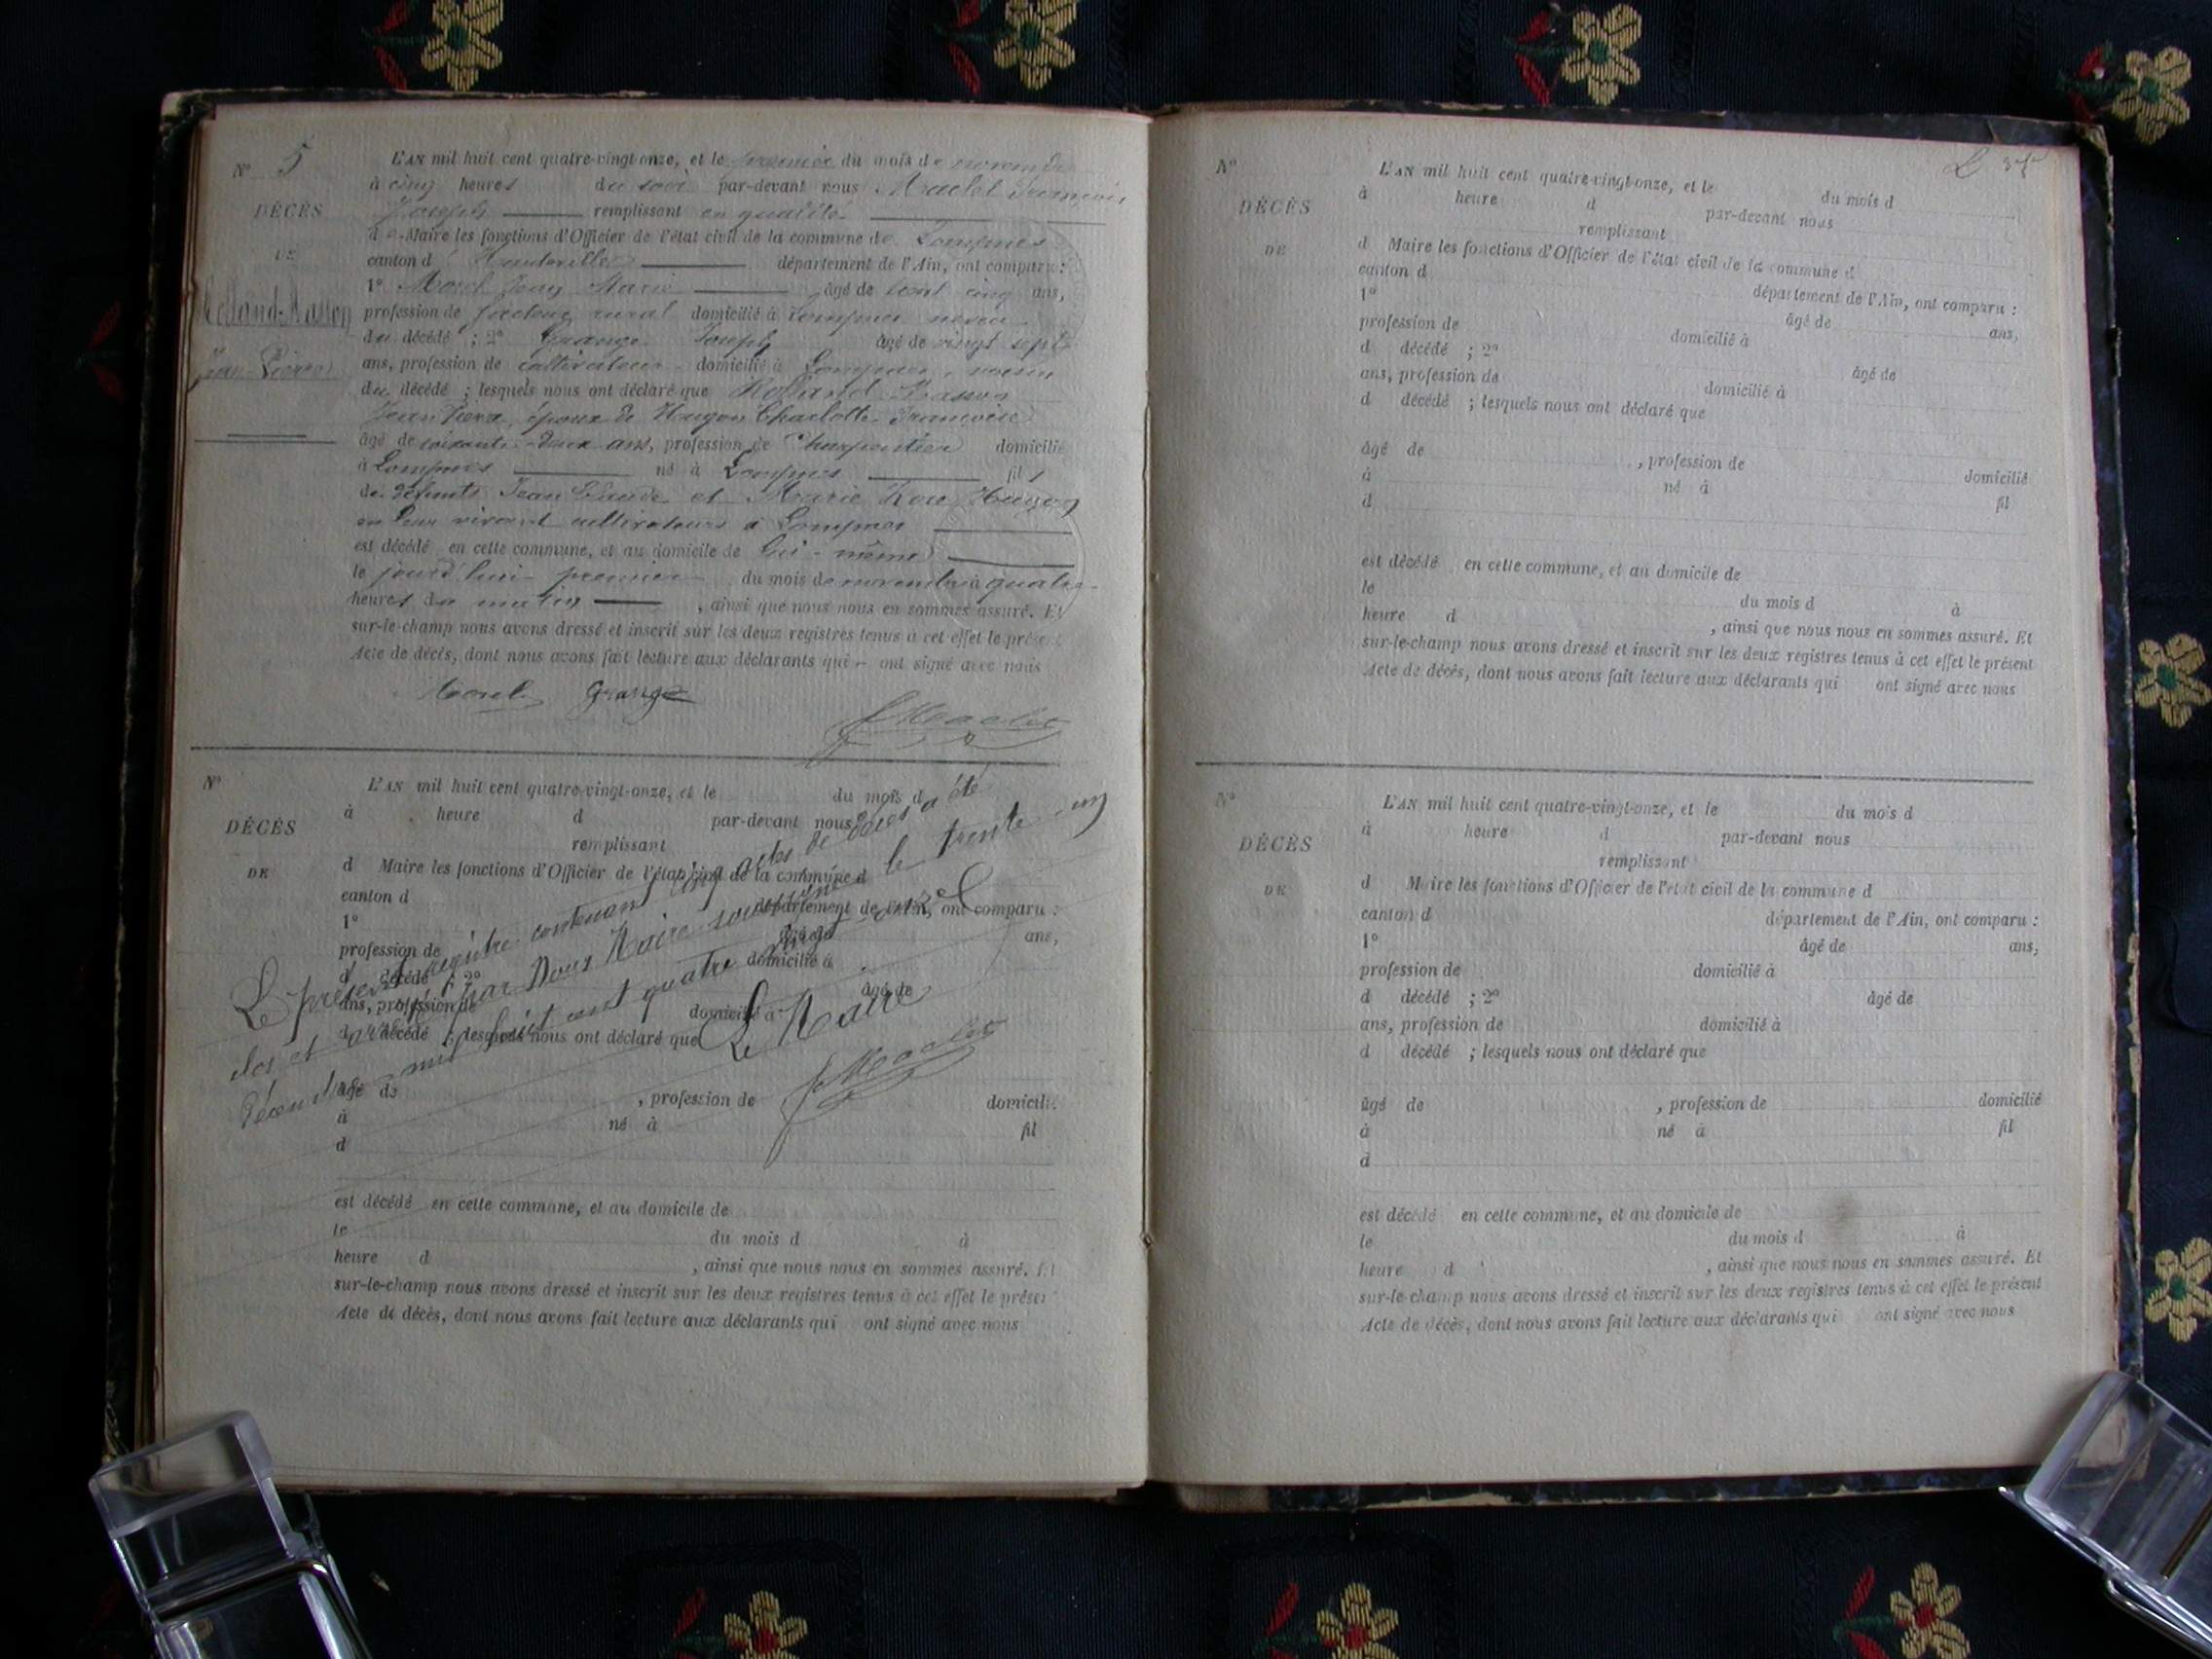 N° 5
DÉCÈS
DE
Rolland-Basson
Jean-Pierre
L'AN mil huit cent quatre-vingt-onze, et le premier du mois de novembre
à cinq heures du soir par-devant nous Maclet François
Joseph remplissant en qualité
de Maire les fonctions d'Officier de l'état civil de la commune de Lompnes
canton d' Hauteville département de l'Ain, ont comparu :
1° Morel Jean Marie âgé de cinq ans,
profession de facteur rural domicilié à Lompnes neveu
du décédé ; 2° Grange Joseph âgé de vingt sept
ans, profession de cultivateur domicilié à Lompnes, voisin
du décédé ; lesquels nous ont déclaré que Rolland-Basson
Jean Pierre, époux de Charlotte Françoise
âgé de soixante-deux ans, profession de Charpentier domicilié
à Lompnes né à Lompnes fils
de défunts Jean Claude et Marie Rose Hugon
en leur vivant cultivateurs à Lompnes
est décédé en cette commune, et au domicile de lui-même
le jourd'hui premier du mois de novembre à quatre
heures du matin , ainsi que nous nous en sommes assuré. Et
sur-le-champ nous avons dressé et inscrit sur les deux registres tenus à cet effet le présent
Acte de décès, dont nous avons fait lecture aux déclarants qui ont signé avec nous
Morel Grange
Maclet
N°
DÉCÈS
DE
L'AN mil huit cent quatre-vingt-onze, et le du mois d
à heure d par-devant nous
remplissant
d Maire les fonctions d'Officier de l'état civil de la commune d
canton d département de l'Ain, ont comparu :
1° âgé de ans,
profession de domicilié à
d décédé ; 2° âgé de
ans, profession de domicilié à
d décédé ; lesquels nous ont déclaré que
âgé de , profession de domicilié
à né à fil
d
est décédé en cette commune, et au domicile de
le du mois d à
heure d , ainsi que nous nous en sommes assuré. Et
sur-le-champ nous avons dressé et inscrit sur les deux registres tenus à cet effet le présent
Acte de décès, dont nous avons fait lecture aux déclarants qui ont signé avec nous
Le présent registre contenant cinq actes de décès a été
clos et arrêté par Nous Maire soussigné le trente-un
décembre mil huit cent quatre vingt onze
Le Maire
Maclet
N°
DÉCÈS
DE
L'AN mil huit cent quatre-vingt-onze, et le du mois d
à heure d par-devant nous
remplissant
d Maire les fonctions d'Officier de l'état civil de la commune d
canton d département de l'Ain, ont comparu :
1° âgé de ans,
profession de domicilié à
d décédé ; 2° âgé de
ans, profession de domicilié à
d décédé ; lesquels nous ont déclaré que
âgé de , profession de domicilié
à né à fil
d
est décédé en cette commune, et au domicile de
le du mois d à
heure d , ainsi que nous nous en sommes assuré. Et
sur-le-champ nous avons dressé et inscrit sur les deux registres tenus à cet effet le présent
Acte de décès, dont nous avons fait lecture aux déclarants qui ont signé avec nous
N°
DÉCÈS
DE
L'AN mil huit cent quatre-vingt-onze, et le du mois d
à heure d par-devant nous
remplissant
d Maire les fonctions d'Officier de l'état civil de la commune d
canton d département de l'Ain, ont comparu :
1° âgé de ans,
profession de domicilié à
d décédé ; 2° âgé de
ans, profession de domicilié à
d décédé ; lesquels nous ont déclaré que
âgé de , profession de domicilié
à né à fil
d
est décédé en cette commune, et au domicile de
le du mois d à
heure d , ainsi que nous nous en sommes assuré. Et
sur-le-champ nous avons dressé et inscrit sur les deux registres tenus à cet effet le présent
Acte de décès, dont nous avons fait lecture aux déclarants qui ont signé avec nous